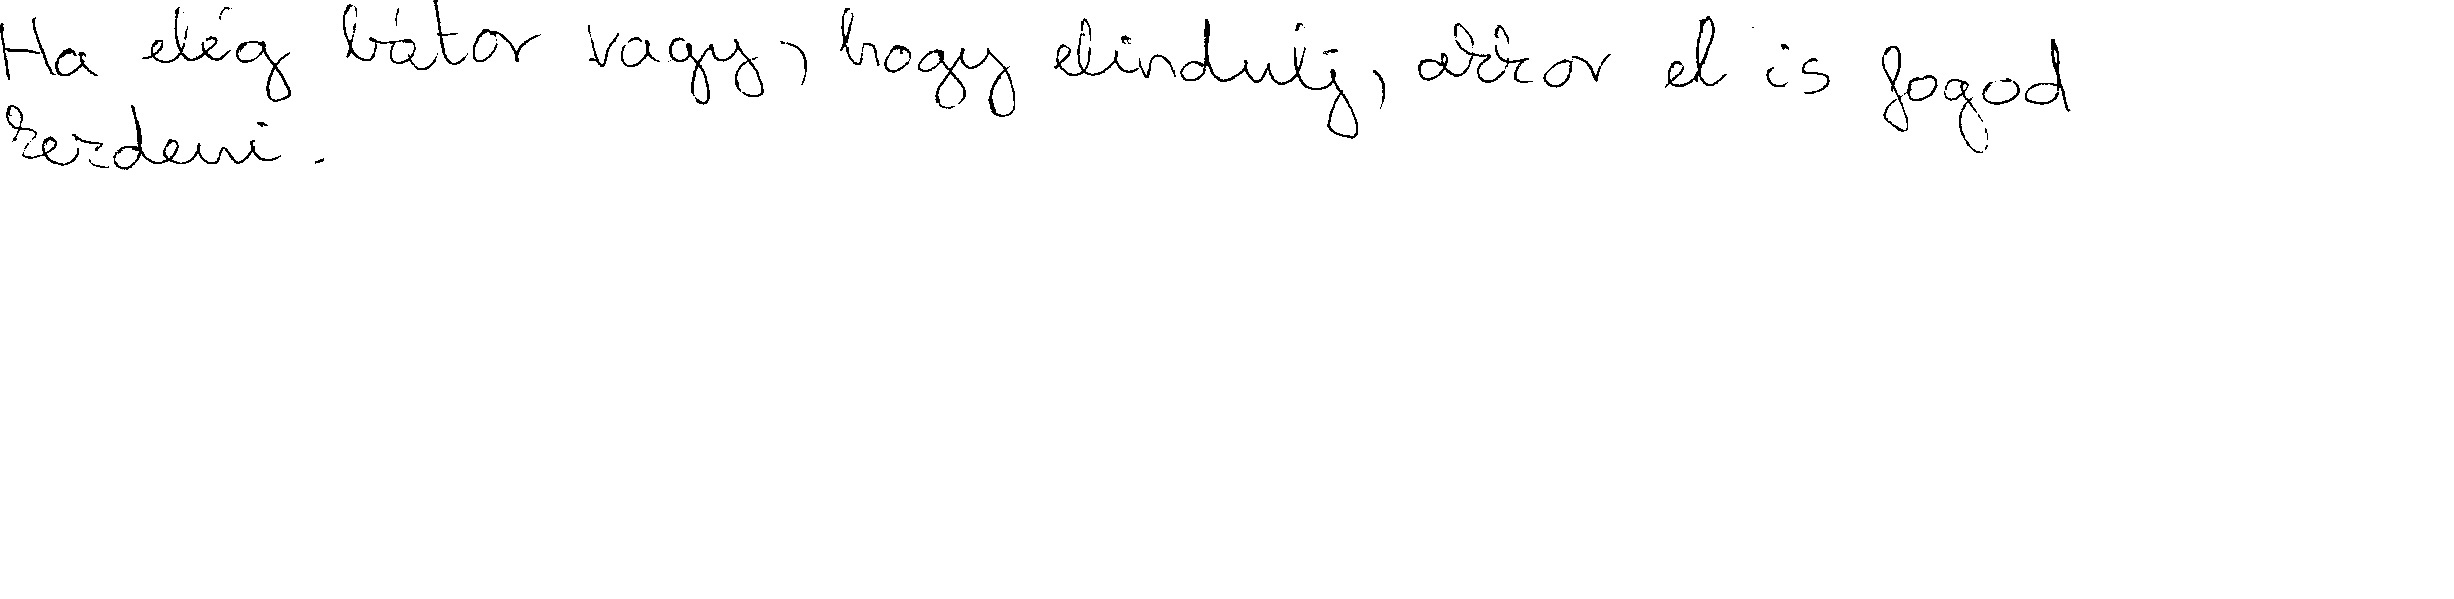 Ha elég bátor vagy, hogy elindulj, akkor el is fogod
kezdeni.